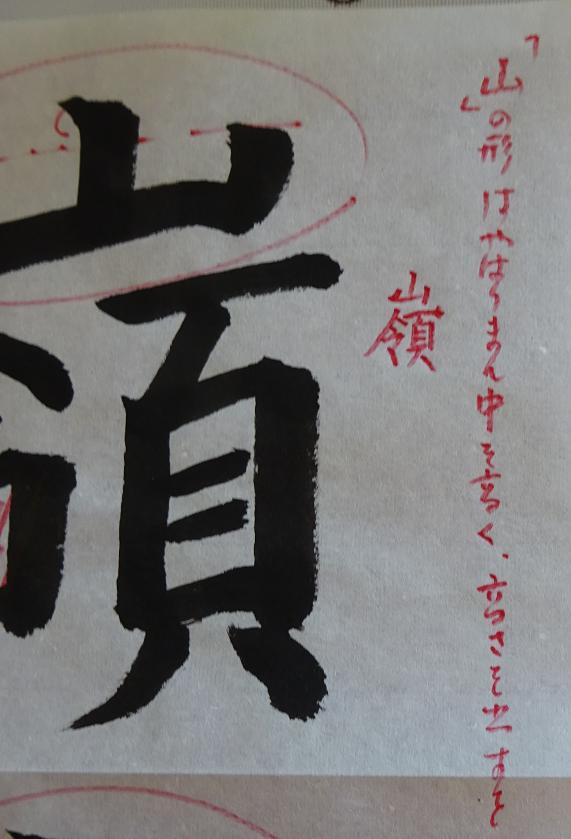 「山」の形はやはりまん中を高く、高さを出すと
嶺
嶺